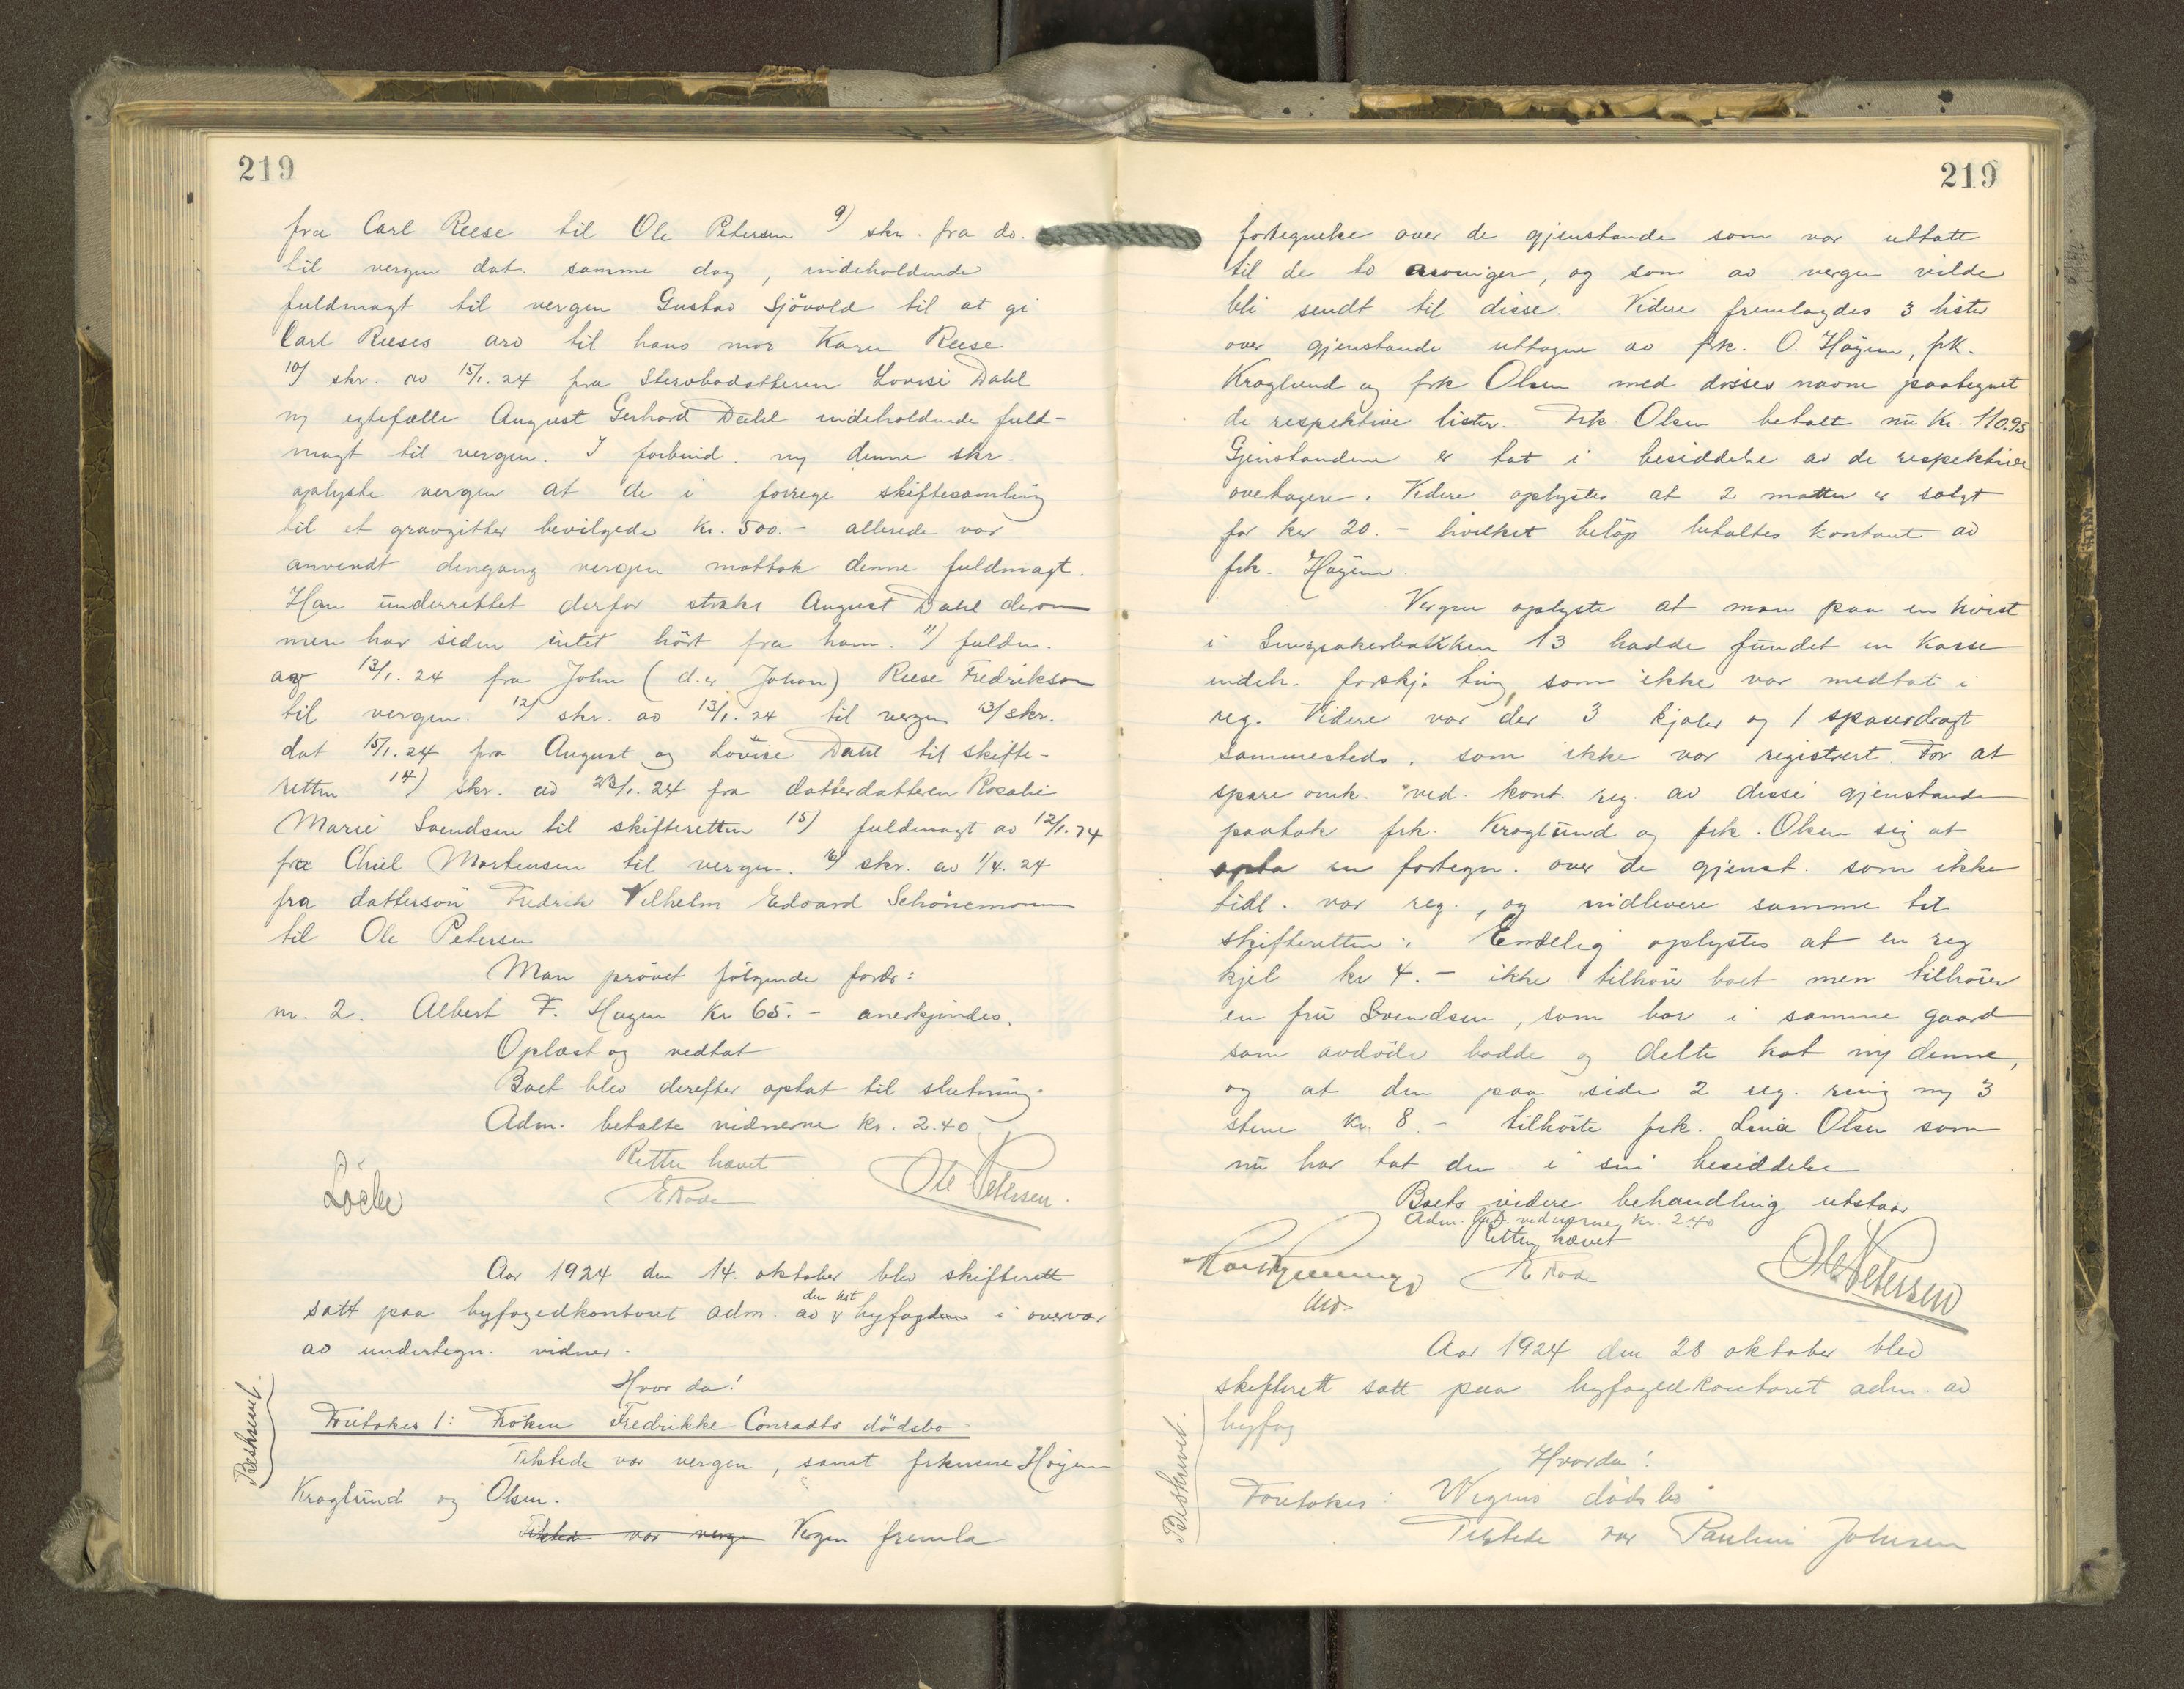 219
fra Carl Reese til Ole Petersen 9) skr. fra do.
til vergen dat. samme dag, indeholdende
fuldmagt til vergen Gustav Sjövold til at gi
Carl Reeses arv til hans mor Karen Reese
10) skr. av 15/1. 24 fra Stervbodatteren Lovise Dahl
m/ egtefælle August Gerhard Dahl indeholdende fuld-
magt til vergen. I forbind. m/ denne skr.
oplyste vergen at de i forrige skiftesamling
til et gravgitter bevilgede kr. 500.- allerede var
anvendt dengang vergen mottok denne fuldmagt.
Han underrettet derfor straks August Dahl derom
men har siden intet hört fra ham. 11) fuldm.
av 13/1. 24 fra John (d.e. Johan) Reese Fredrikson
til vergen. 12) skr. av 13/1. 24 til vergen 13) skr.
dat 15/1. 24 fra August og Lovise Dahl til skifte-
retten 14) skr. av 23/1. 24 fra datterdatteren Rosalie
Marie Svendsen til skifteretten 15) fuldmagt av 12/1. 24
fra Chiel Mortensen til vergen. 16) skr. av 1/4. 24
fra dattersön Fredrik Vilhelm Edvard Schönemann
til Ole Petersen
Man prövet fölgende fordr:
nr. 2. Albert F. Hagen kr 65.- anerkjendes.
Oplæst og vedtat
Boet blev derefter optat til slutning.
Adm. betalte vidnerne kr. 2.40
Retten hævet
E Rode
Ole Petersen.
Aar 1924 den 14. oktober blev skifterett
satt paa byfogedkontoret adm. av den kst byfogden i overvær
av undertegn. vidner.
Hvor da!
Beskrevet.
Foretokes 1: Fröken Fredrikke Conradts dödsbo
Tilstede var vergen, samt frknene Höyem
Kraglund og Olsen.
Tilstede var verge Vergen fremla
219
fortegnelse over de gjenstande som var uttatt
til de to arvinger, og som av vergen vilde
bli sendt til disse. Videre fremlagdes 3 lister
over gjenstande uttagne av frk. O. Höyem, frk.
Kraglund og frk Olsen med disses navne paategnet
de respektive lister. Frk. Olsen betalt nu Kr. 110.95
Gjenstandene er tat i besiddelse av de respektive
overtagere. Videre oplystes at 2 matter er solgt
for kr 20.- hvilket belöp betaltes kontant av
frk. Höyem.
Vergen oplyste at man paa en kvist
i Smørakerbakken 13 hadde fundet en kasse
indeh. forskj. ting, som ikke var medtat i
reg. Videre var der 3 kjoler og 1 spaserdragt
sammesteds, som ikke var registrert. For at
spare omk. ved kont. reg. av disse gjenstande
paatok frk. Kraglund og frk. Olsen sig at
opta en fortegn. over de gjenst. som ikke
tidl. var reg., og indlevere samme til
skifteretten. Endelig oplystes at en reg
kjel kr 4.- ikke tilhörer boet men tilhörer
en fru Svendsen, som bor i samme gaard
som avdöde hadde og delte kot m/ denne,
og at den paa side 2 reg. ring m/ 3
stene kr. 8.- tilhörte frk. Lina Olsen som
nu har tat den i sin besiddelse
Boets videre behandling utstaar
Adm. bet. vidnerne kr. 2.40
Retten hævet
E Rode
Ole Petersen
Aar 1924 den 28 oktober blev
skifterett satt paa byfogedkontoret adm. av
byfog
Hvorda!
Beskrevet.
Foretokes: Wegners dödsbo
Tilstede var Pauline Johnsen